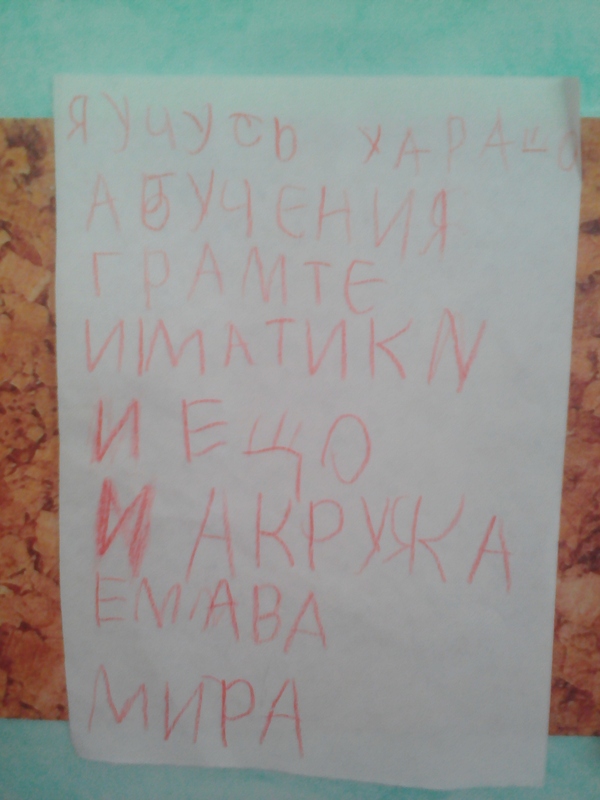 Я УЧУСЬ ХАРАШО
АБУЧЕНИЯ
ГРАМТЕ
ИМАТИКИ
И ЕЩО
И АКРУЖА
ЕМАВА
МИРА